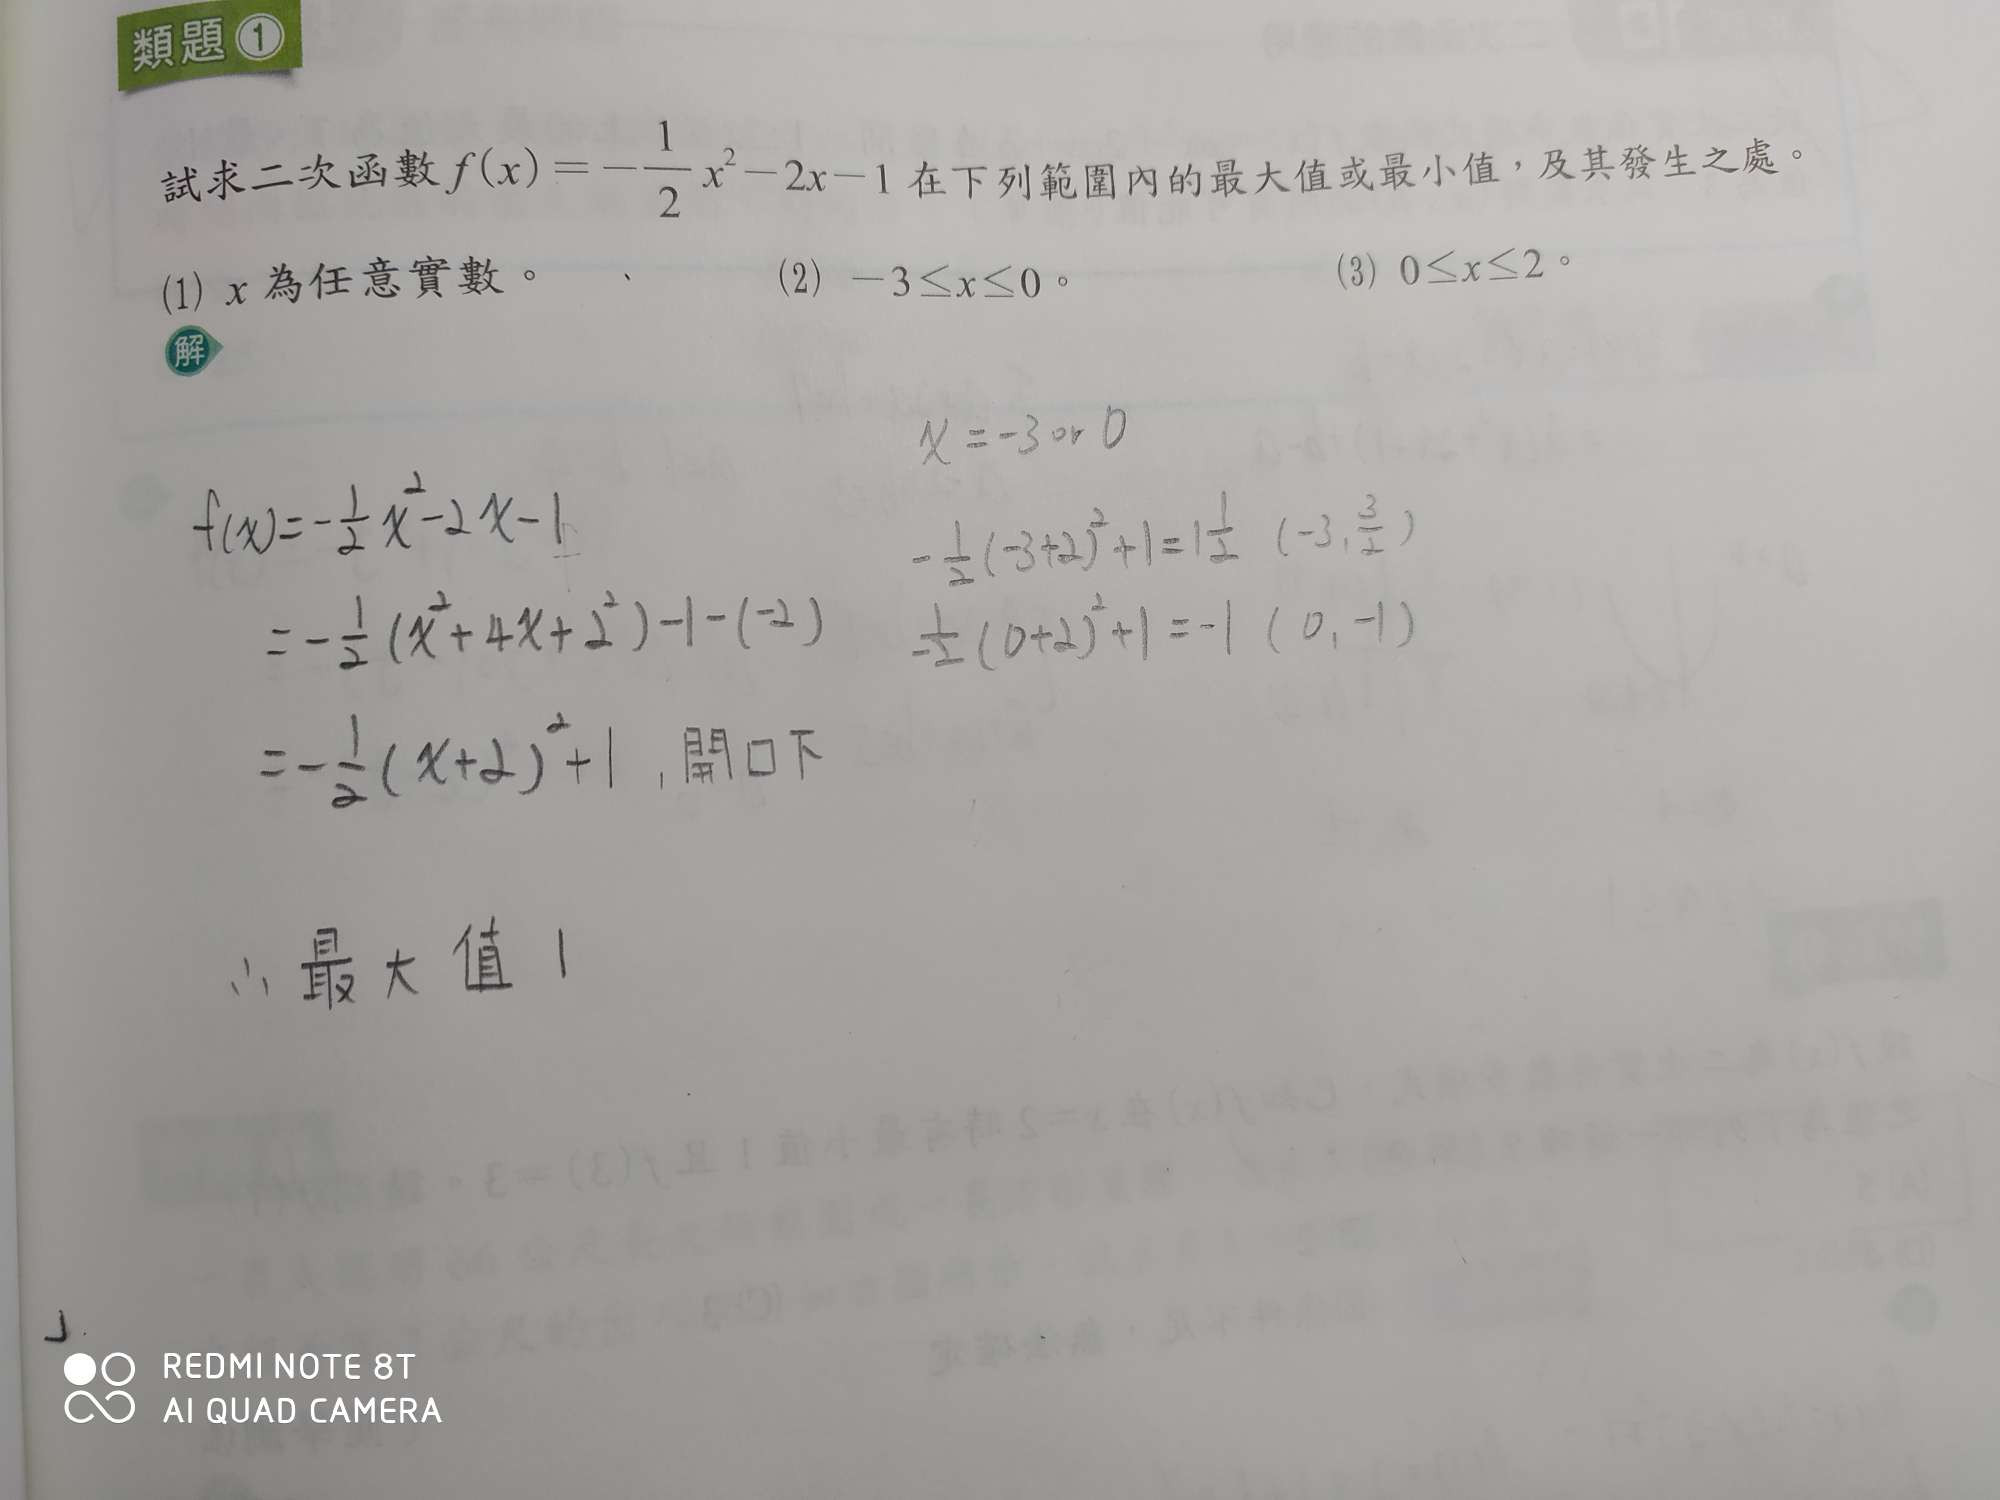 類題 1
試求二次函數 f(x)=-1/2 x²-2x-1 在下列範圍內的最大值或最小值，及其發生之處。
(1) x 為任意實數。 (2) -3≤x≤0。 (3) 0≤x≤2。
解
x=-3 or 0
f(x)=-1/2 x²-2x-1
-1/2(-3+2)²+1=1 1/2 (-3, 3/2)
=-1/2(x²+4x+2²)-1-(-2)
-1/2(0+2)²+1=-1 (0, -1)
=-1/2(x+2)²+1, 開口下
∴最大值 1
REDMI NOTE 8T
AI QUAD CAMERA